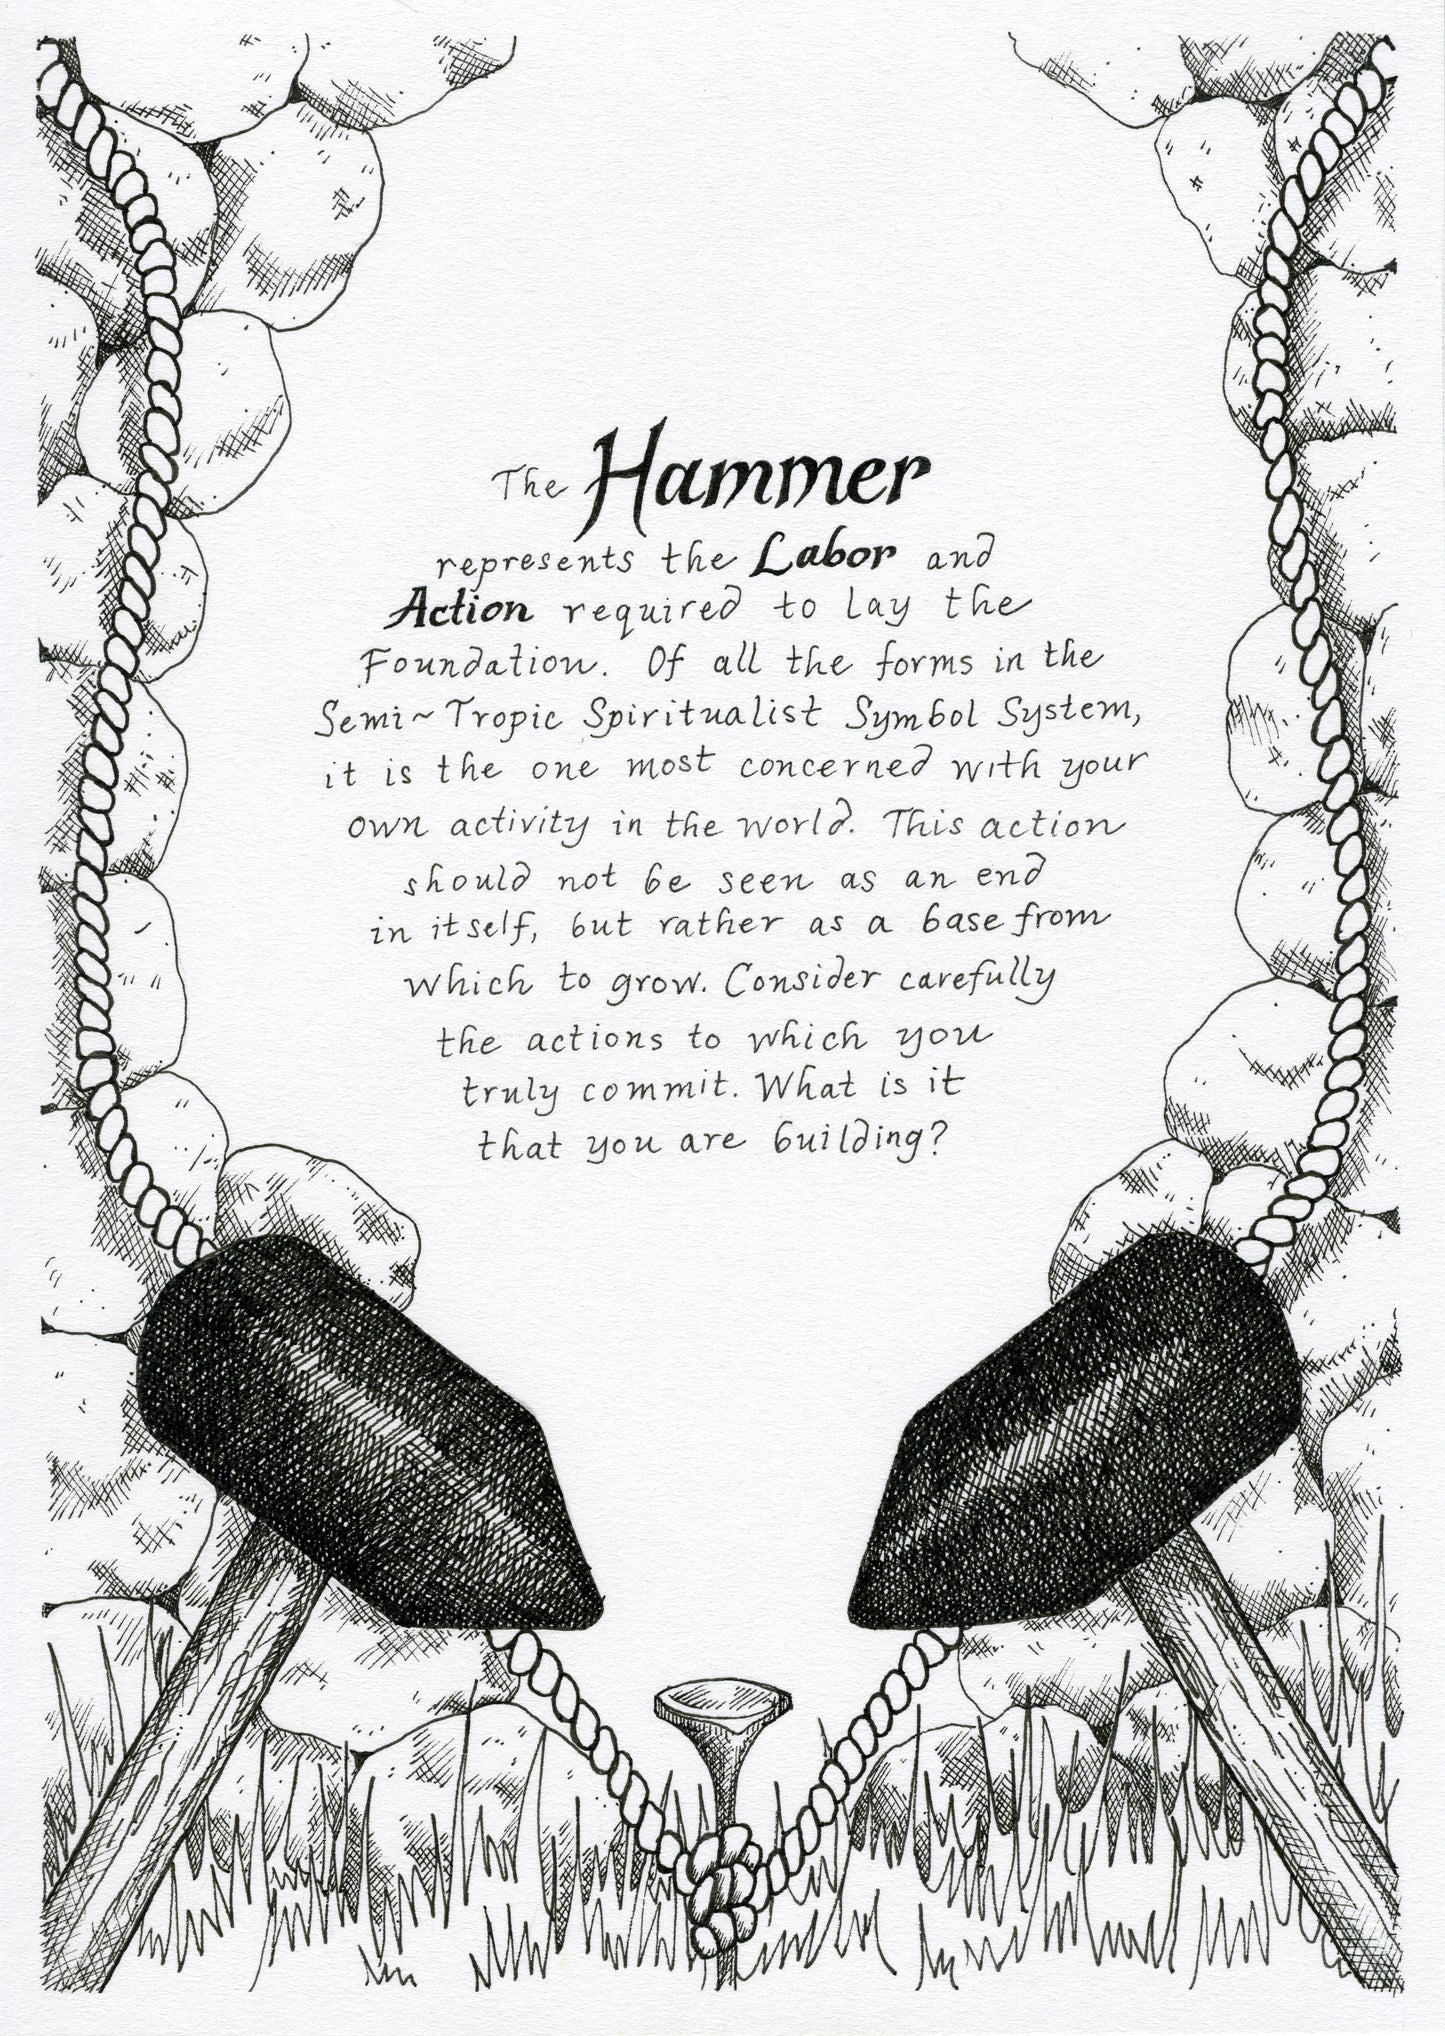 The Hammer
represents the Labor and
Action required to lay the
Foundation. Of all the forms in the
Semi~Tropic Spiritualist Symbol System,
it is the one most concerned with your
own activity in the world. This action
should not be seen as an end
in itself, but rather as a base from
which to grow. Consider carefully
the actions to which you
truly commit. What is it
that you are building?